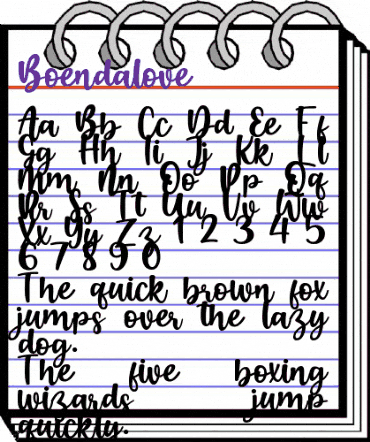 Boendalove
Aa Bb Cc Dd Ee Ff
Gg Hh Ii Jj Kk Ll
Mm Nn Oo Pp Qq
Rr Ss Tt Uu Vv Ww
Xx Yy Zz 1 2 3 4 5
6 7 8 9 0
The quick brown fox
jumps over the lazy
dog.
The five boxing
wizards jump
quickly.